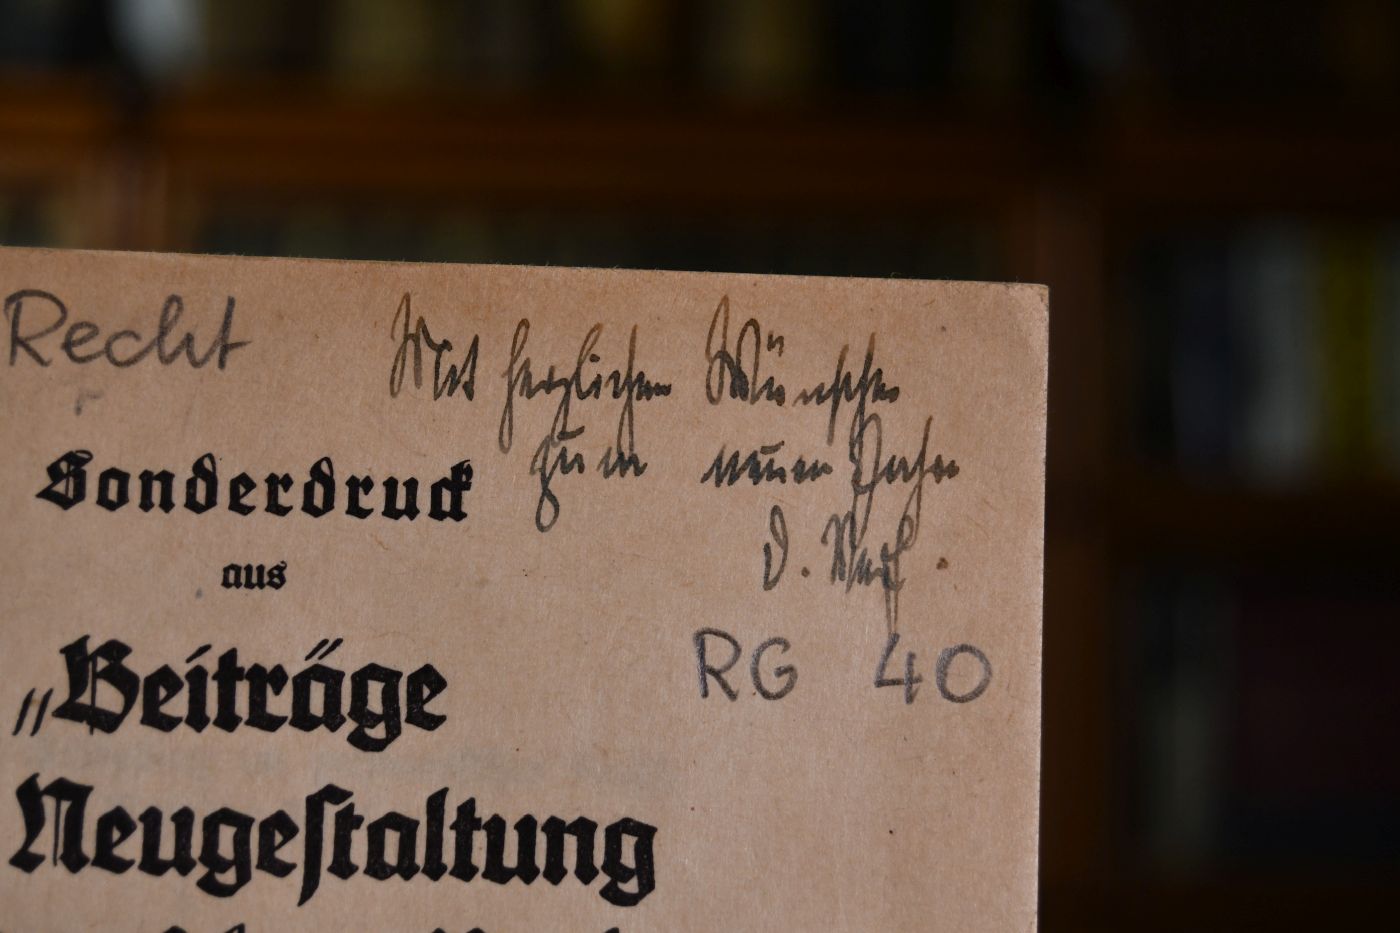 Recht
Mit herzlichen Wünschen
zum neuen Jahr
D.
Sonderdruck
aus
RG 40
„Beiträge
Neugestaltung